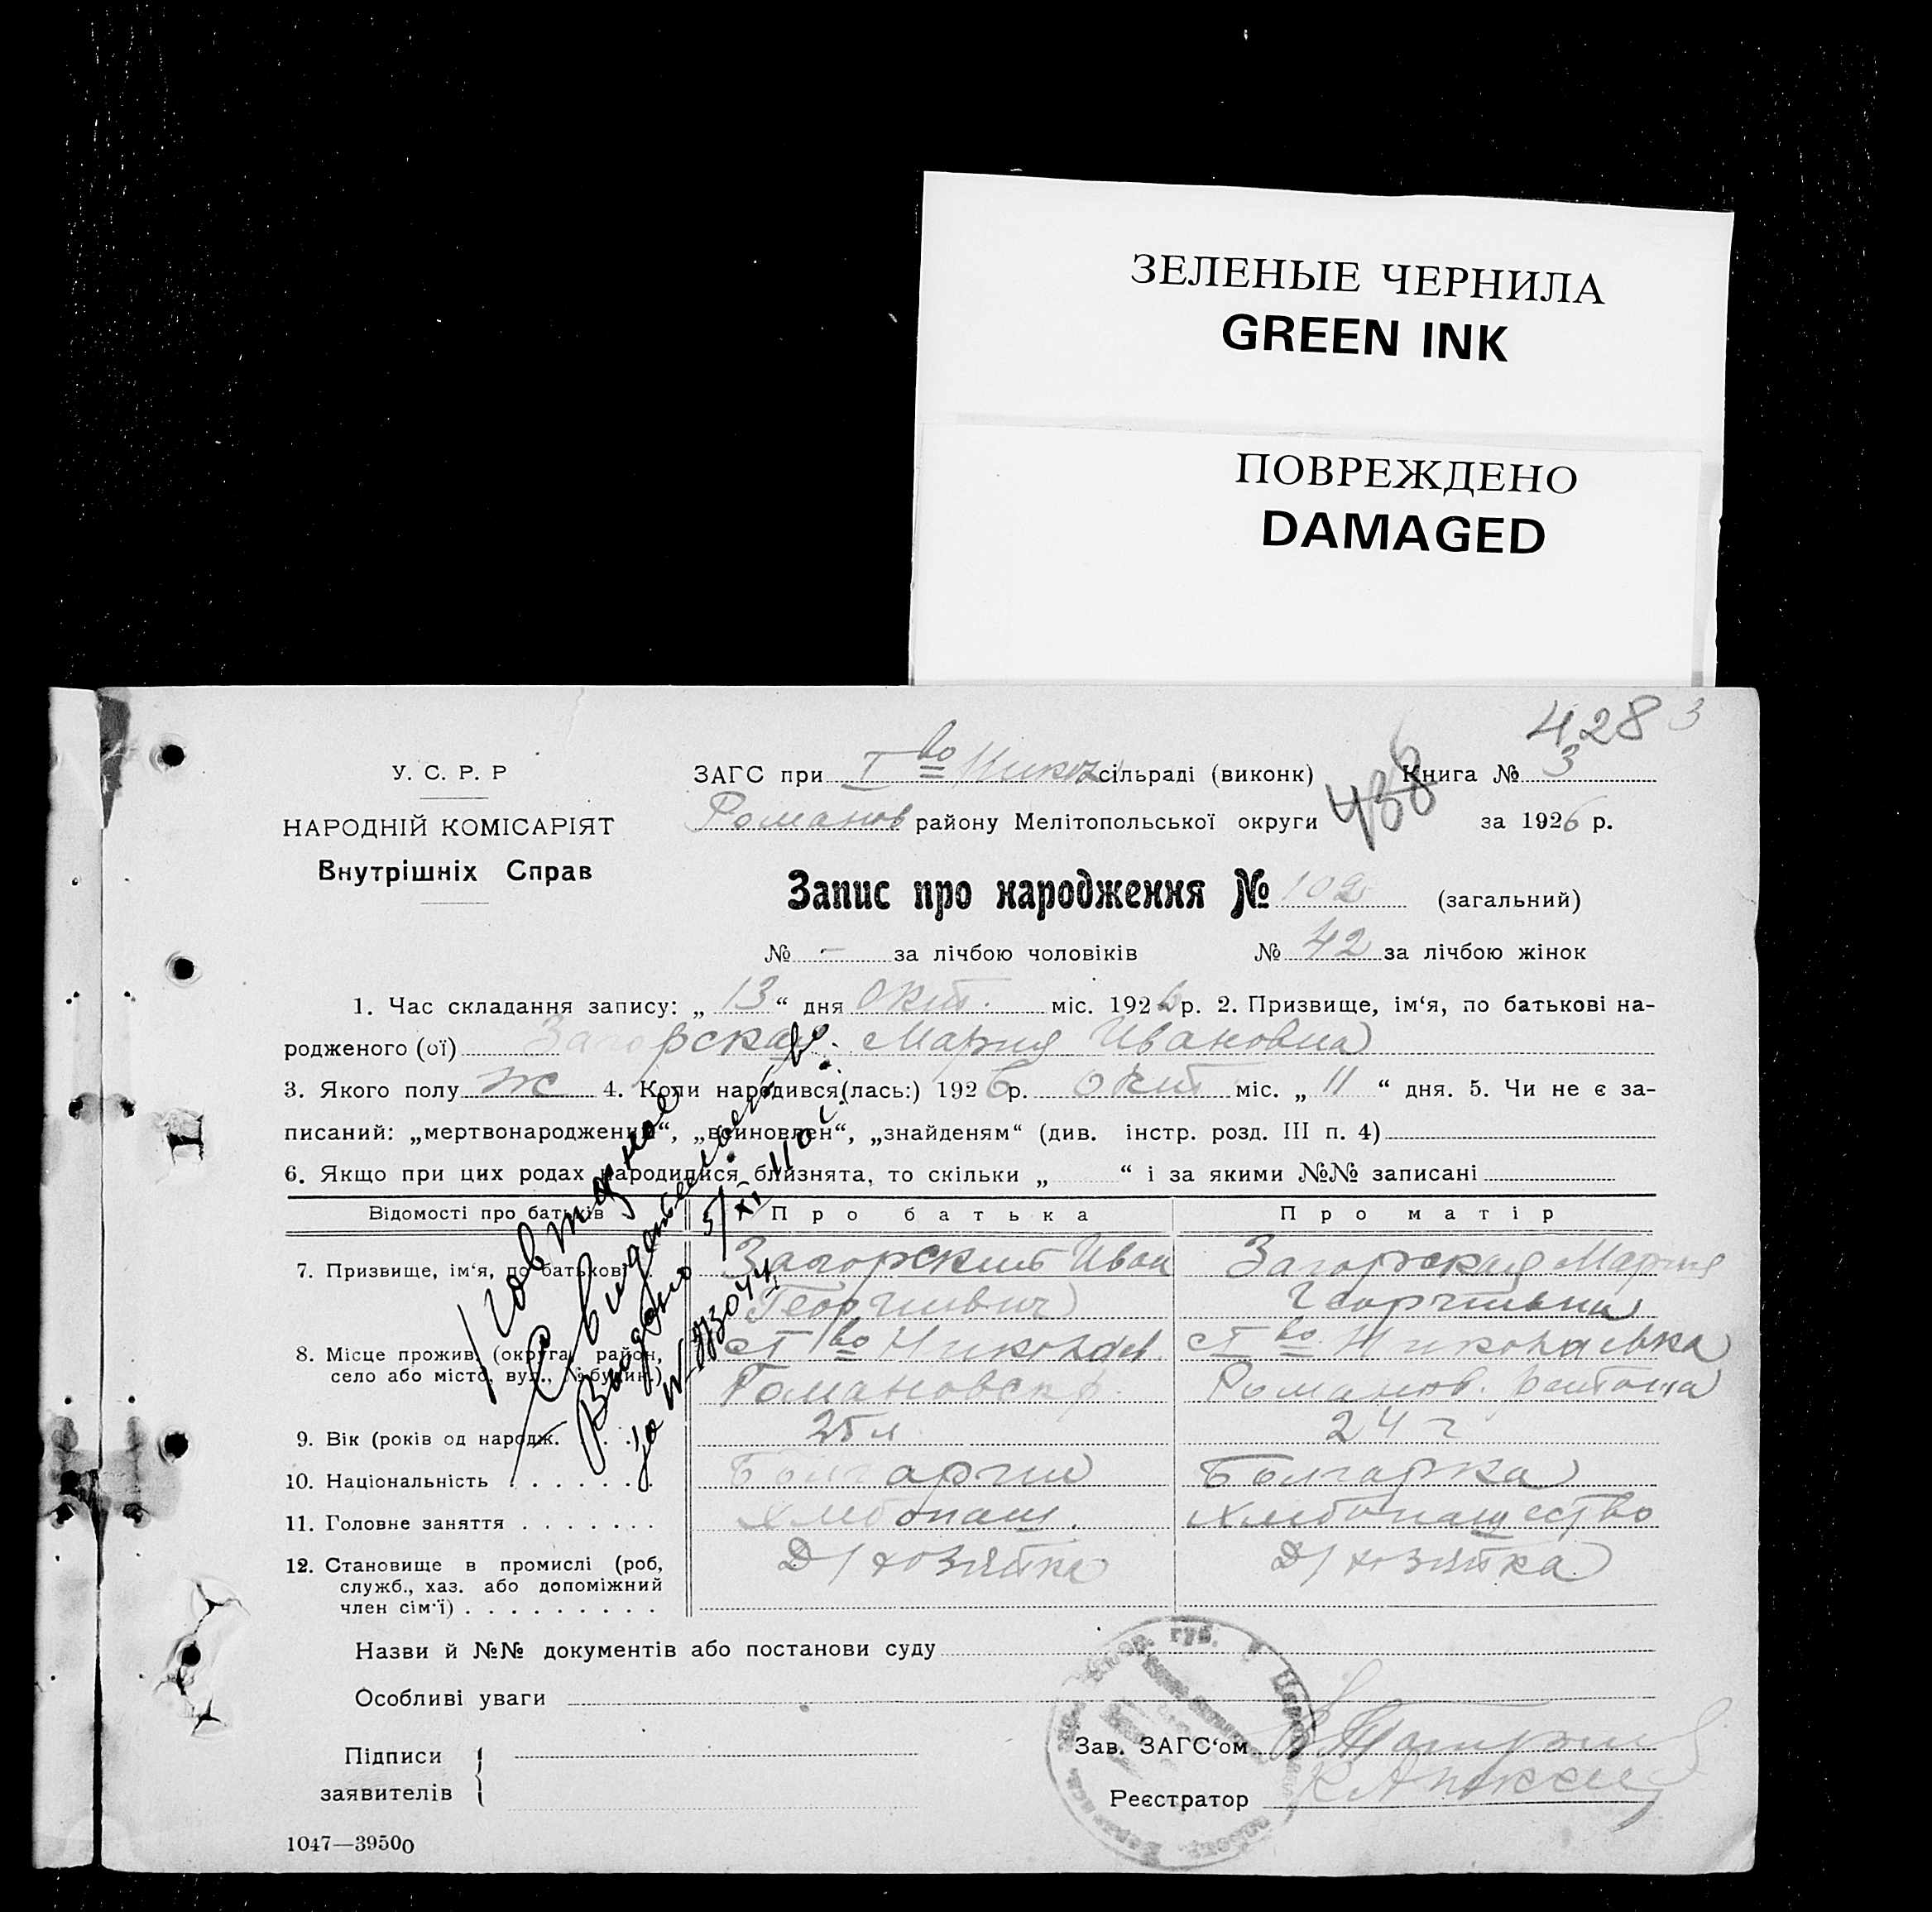 ЗЕЛЕНЫЕ ЧЕРНИЛА
GREEN INK
ПОВРЕЖДЕНО
DAMAGED
428 3
У. С. Р. Р
НАРОДНІЙ КОМІСАРІЯТ
Внутрішніх Справ
ЗАГС при сільраді (виконк) Книга № 3
438
Романов району Мелітопольської округи за 1926 р.
Запис про народження № 102 (загальний)
№ - за лічбою чоловіків № 42 за лічбою жінок
1. Час складання запису: „ 13 “ дня Окт. міс. 1926 р. 2. Призвище, ім‘я, по батькові на-
родженого (ої) Загорская Мария Ивановна
3. Якого полу ж 4. Коли народився(лась:) 1926 р. окт міс. „ 11 “ дня. 5. Чи не є за-
писаний: „мертвонароджений“, „ “, „знайденям“ (див. інстр. розд. III п. 4)
6. Якщо при цих родах народилися близнята, то скільки „ “ і за якими №№ записані
Відомості про батьків Про батька Про матір
7. Призвище, ім‘я, по батькові Загорский Иван Загорская Мария
8. Місце прожив. (округа, район, Николаевка
село або місто, вул., № будин.) Романовск р. Романов.
9. Вік (років од народж. 25 л 24 г
10. Національність Болгарин Болгарка
11. Головне заняття Хлебопаш. Хлебопашество
12. Становище в промислі (роб, Д/хозяйка Д/хозяйка
служб., хаз. або допоміжний
член сім‘ї)
Повторное
Свидетельство
Выдано 5/XI
за №
Назви й №№ документів або постанови суду
Особливі уваги
Підписи
заявителів
Зав. ЗАГС‘ом
Реєстратор
губ.
1047—39500